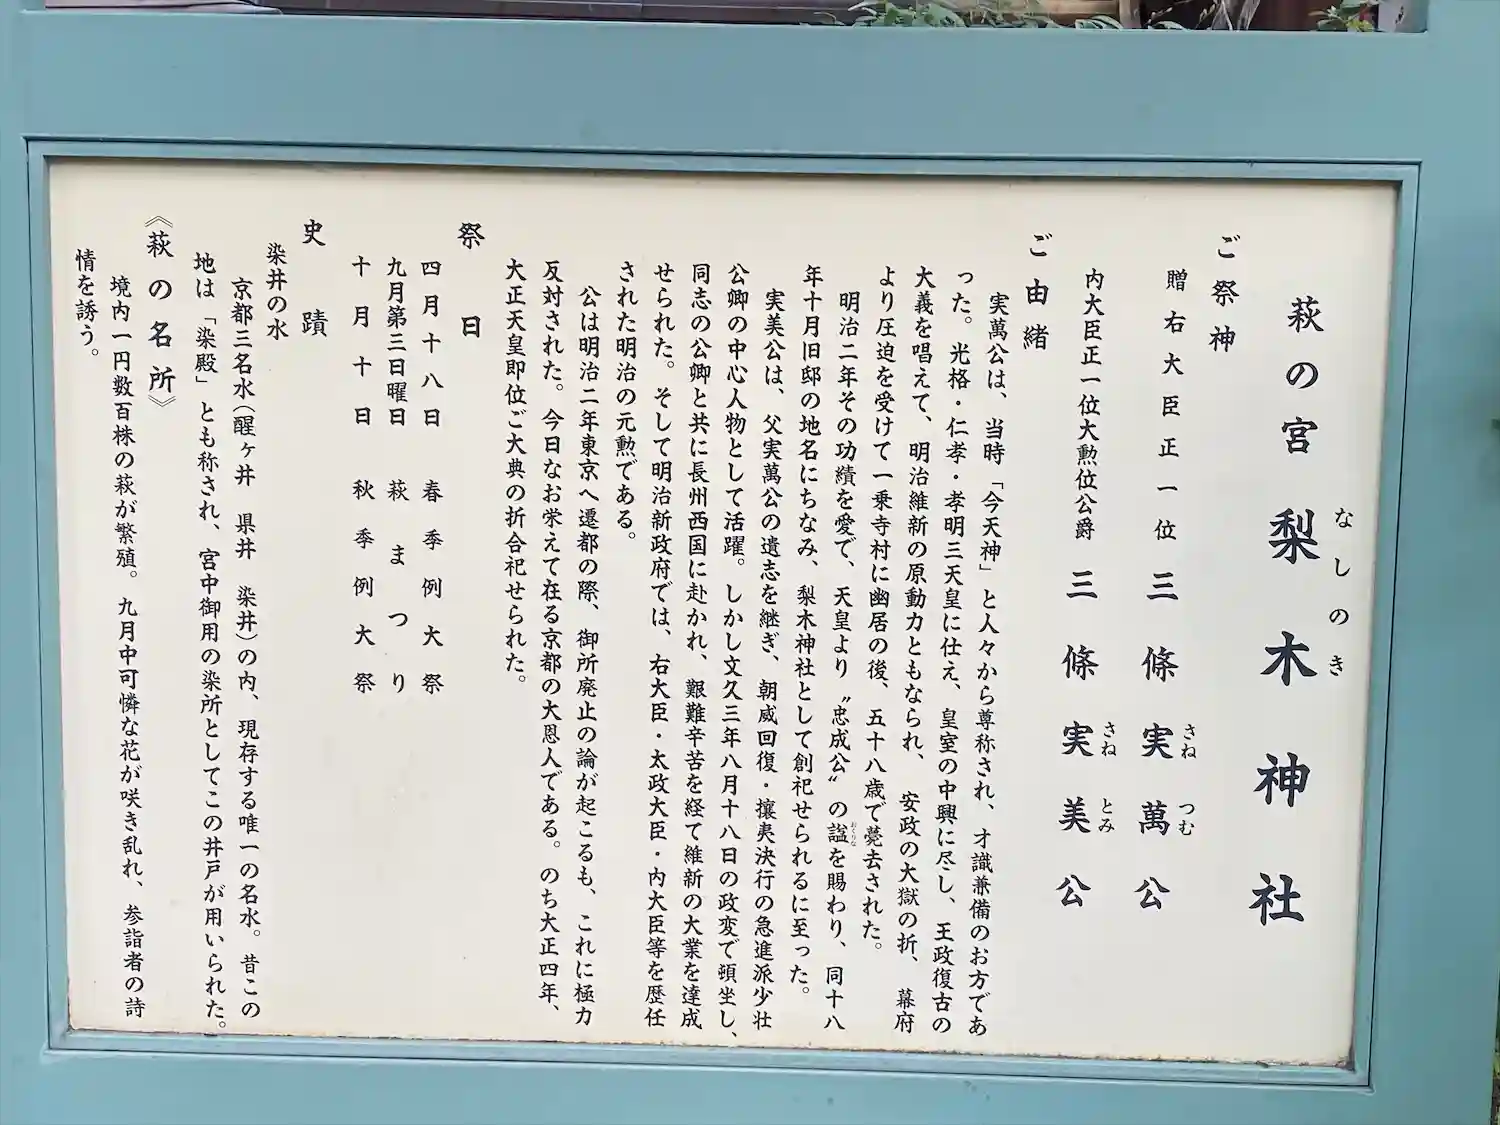 萩の宮 梨木神社
なしのき
ご祭神
贈右大臣正一位 三條実萬公
さねつむ
内大臣正一位大勲位公爵 三條実美公
さねとみ
ご由緒
実萬公は、当時「今天神」と人々から尊称され、才識兼備のお方であ
った。光格・仁孝・孝明三天皇に仕え、皇室の中興に尽し、王政復古の
大義を唱えて、明治維新の原動力ともなられ、安政の大獄の折、幕府
より圧迫を受けて一乗寺村に幽居の後、五十八歳で薨去された。
明治二年その功績を愛で、天皇より〝忠成公〟の諡を賜わり、同十八
おくりな
年十月旧邸の地名にちなみ、梨木神社として創祀せられるに至った。
実美公は、父実萬公の遺志を継ぎ、朝威回復・攘夷決行の急進派少壮
公卿の中心人物として活躍。しかし文久三年八月十八日の政変で頓坐し、
同志の公卿と共に長州西国に赴かれ、艱難辛苦を経て維新の大業を達成
せられた。そして明治新政府では、右大臣・太政大臣・内大臣等を歴任
された明治の元勲である。
公は明治二年東京へ遷都の際、御所廃止の論が起こるも、これに極力
反対された。今日なお栄えて在る京都の大恩人である。のち大正四年、
大正天皇即位ご大典の折合祀せられた。
祭日
四月十八日 春季例大祭
九月第三日曜日 萩まつり
十月十日 秋季例大祭
史蹟
染井の水
京都三名水(醒ヶ井 県井 染井)の内、現存する唯一の名水。昔この
地は「染殿」とも称され、宮中御用の染所としてこの井戸が用いられた。
《萩の名所》
境内一円数百株の萩が繁殖。九月中可憐な花が咲き乱れ、参詣者の詩
情を誘う。